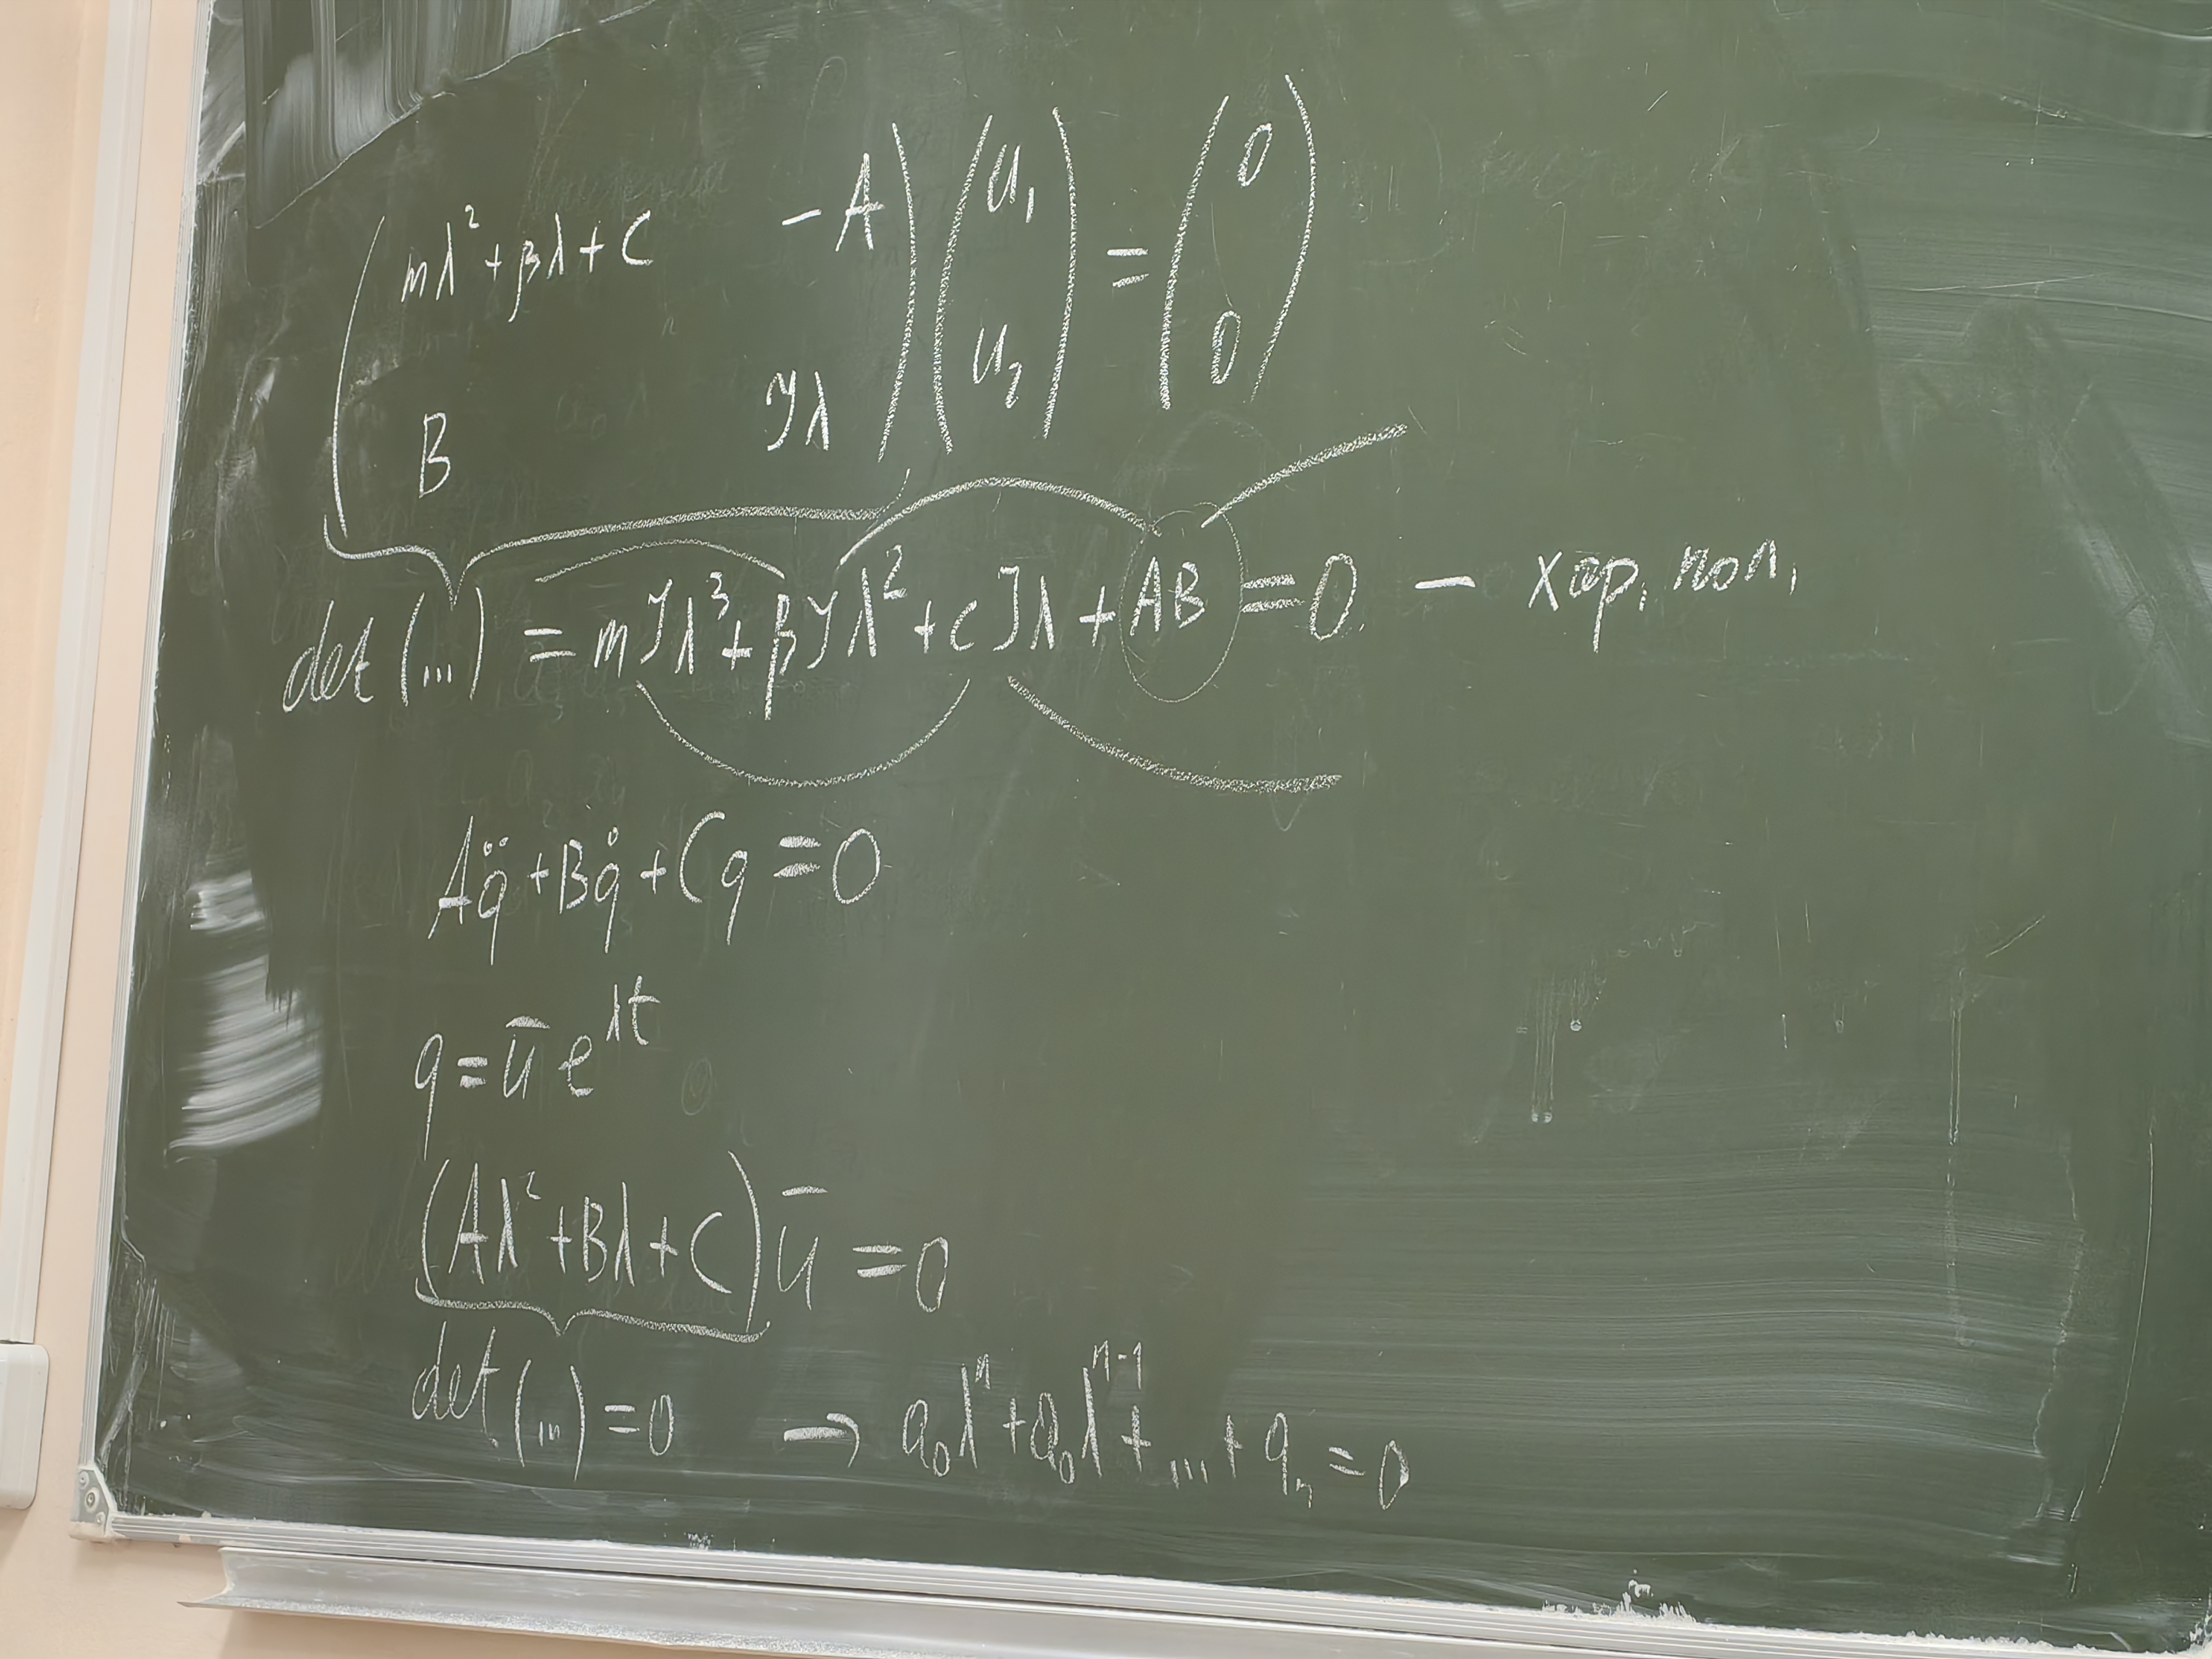 ( mλ² + βλ + C   -A ) ( u₁ ) = ( 0 )
( B   Jλ ) ( u₂ )   ( 0 )
det (...) = mJλ³ + βJλ² + cJλ + AB = 0 — хар. пол.
Aq̈ + Bq̇ + Cq = 0
q = ū e^λt
(Aλ² + Bλ + C) ū = 0
det (...) = 0 → a₀λⁿ + a₀λⁿ⁻¹ + ... + aₙ = 0